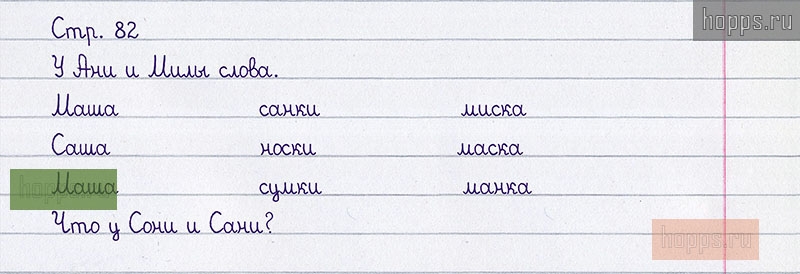 hopps.ru
Стр. 82
У Ани и Милы слова.
Маша санки миска
Саша носки маска
Маша сумки манка
Что у Сони и Сани?
hopps.ru